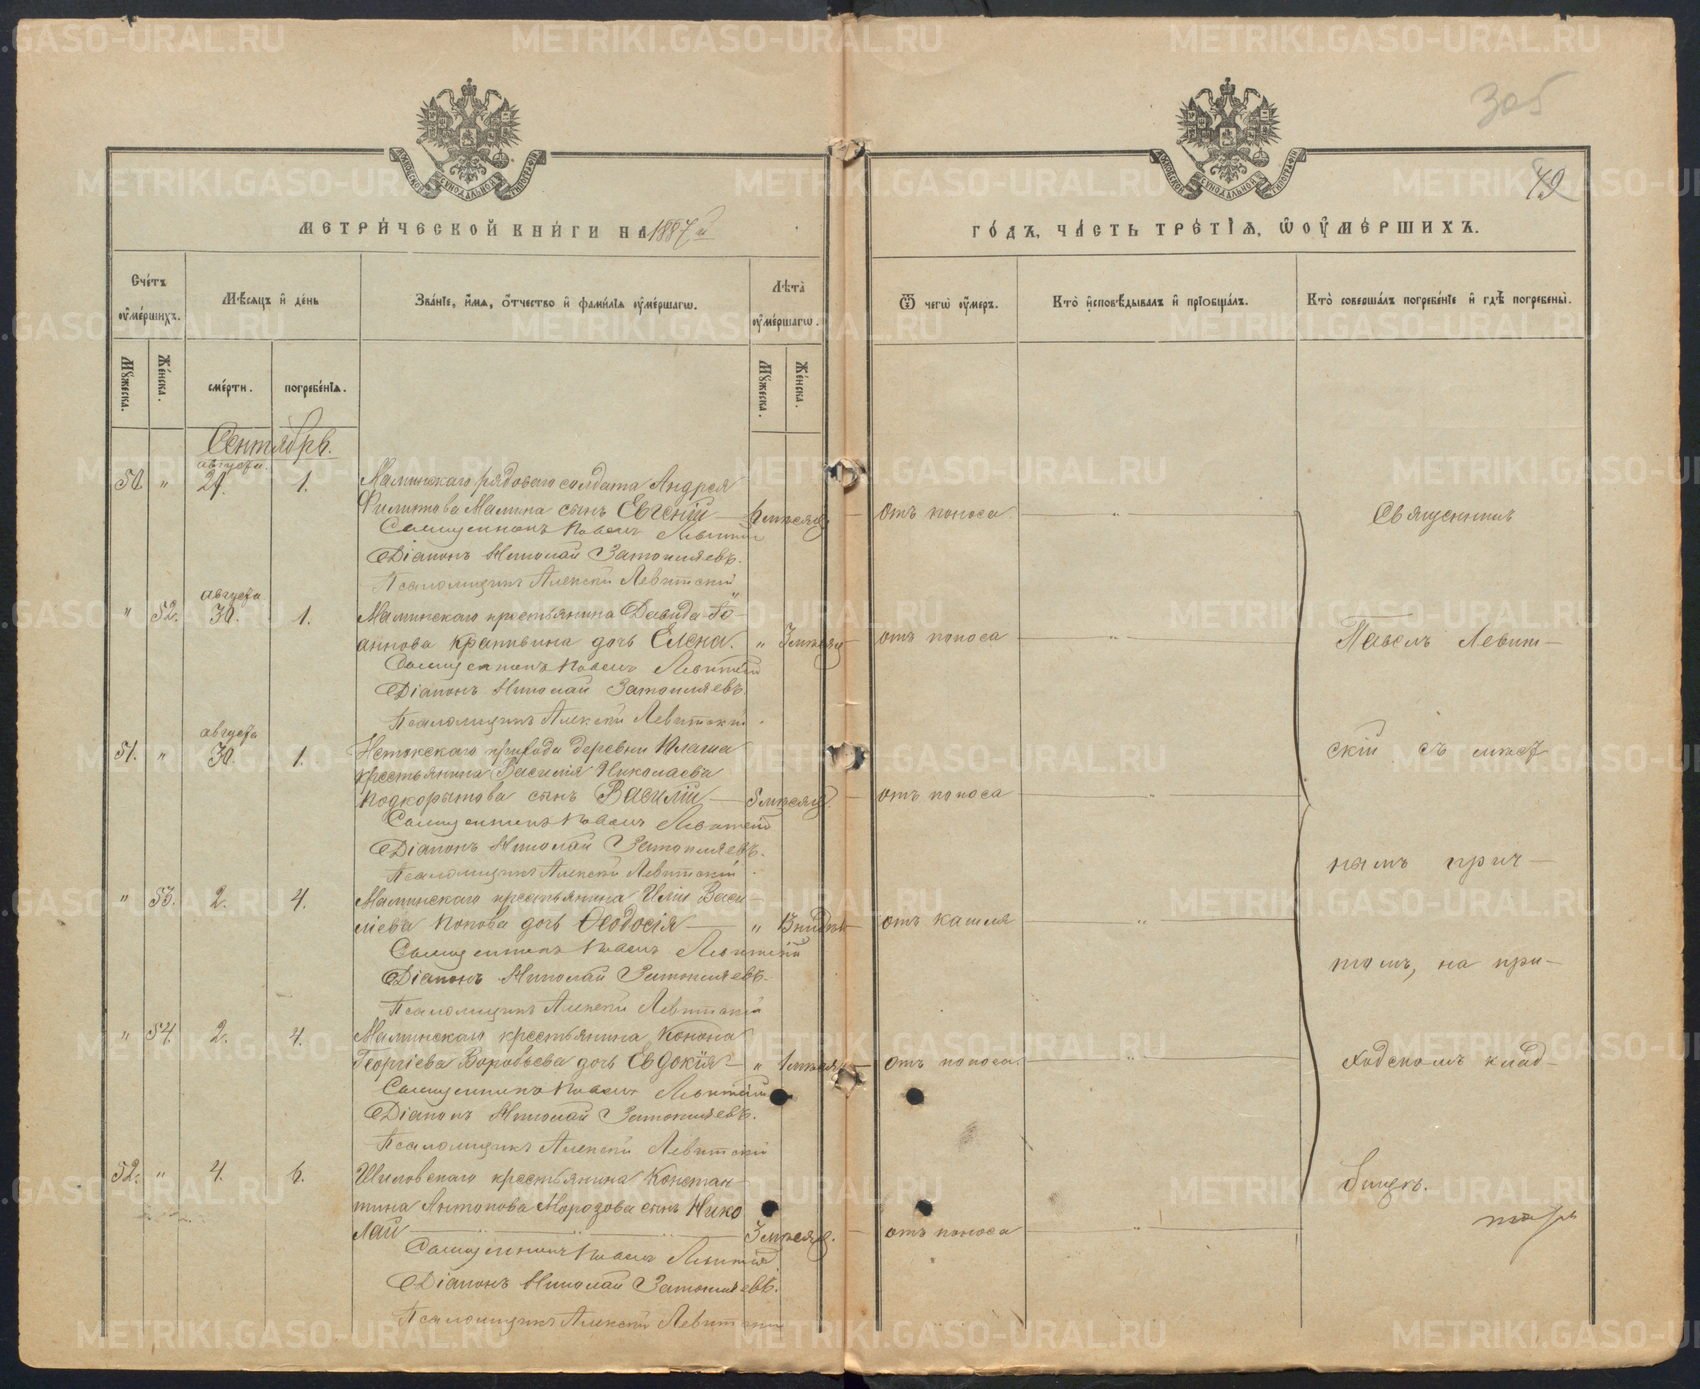 305
42
МЕТРИЧЕСКОЙ КНИГИ НА 1887й
ГОДЪ, ЧАСТЬ ТРЕТІЯ, Ѿ ОУМЕРШИХЪ.
Счетъ оумершихъ.
Мѣсяцъ и день
Званіе, имя, отчество и фамилія оумершагѡ.
Лѣта оумершагѡ.
Ѿ чегѡ оумеръ.
Кто исповѣдывалъ и пріобщалъ.
Кто совершалъ погребеніе и гдѣ погребены.
Мужеска.
Женска.
смерти.
погребенія.
Мужеска.
Женска.
Сентябрь.
августа
50. " 29. 1. Маминскаго рядоваго солдата Андрея
Филиппова Мамина сынъ Евгеній — 6 мѣсяц. отъ поноса
Священникъ Павелъ Левитскій
Діаконъ Николай Затопляевъ.
Псаломщикъ Алексій Левитскій
августа
" 52. 30. 1. Маминскаго крестьянина Давида Іо-
аннова Крапивина дочь Елена. " 3 мѣсяц отъ поноса
Священникъ Павелъ Левитскій
Діаконъ Николай Затопляевъ
Псаломщикъ Алексій Левитскій
августа
51. " 30. 1. прихода деревни
крестьянина Василія Николаева
Подкорытова сынъ Василій — 5 мѣсяц. отъ поноса
Священникъ Павелъ Левитскій
Діаконъ Николай Затопляевъ.
Псаломщикъ Алексій Левитскій
" 53. 2. 4. Маминскаго крестьянина Иліи Васи-
ліева Попова дочь Ѳеодосія — " отъ кашля
Священникъ Павелъ Левитскій
Діаконъ Николай Затопляевъ
Псаломщикъ Алексій Левитскій
" 54. 2. 4. Маминскаго крестьянина Конона
Георгіева Воробьева дочь Евдокія — " 1 мѣсяц отъ поноса.
Священникъ Павелъ Левитскій
Діаконъ Николай Затопляевъ.
Псаломщикъ Алексій Левитскій
52. " 4. 6. Шиловскаго крестьянина Констан-
тина Антонова Морозова сынъ Нико
лай — 3 мѣсяц. отъ поноса
Священникъ Павелъ Левитскій
Діаконъ Николай Затопляевъ.
Псаломщикъ Алексій Левитскій
Священникъ
Павелъ Левит-
скій съ мѣст
нымъ прич-
томъ, на при-
ходскомъ клад-
бищѣ.
METRIKI.GASO-URAL.RU